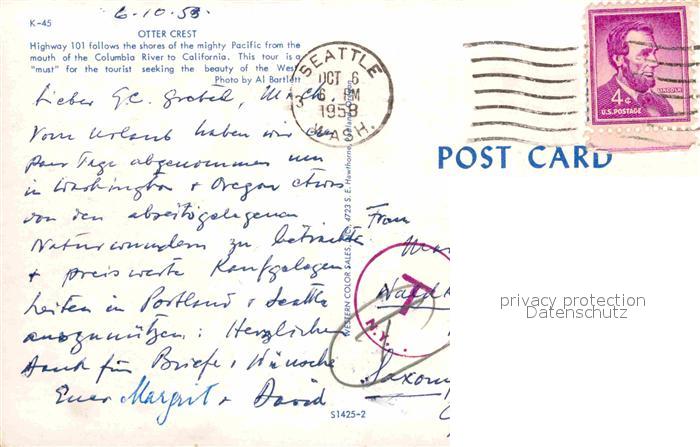 6.10.58
K-45
OTTER CREST
Highway 101 follows the shores of the mighty Pacific from the
mouth of the Columbia River to California. This tour is a
"must" for the tourist seeking the beauty of the West
Photo by Al Bartlett
SEATTLE
OCT 6
6 PM
1958
WASH.
4¢
LINCOLN
U.S. POSTAGE
POST CARD
Lieber Gretel,
Vom Urlaub haben wir ein
paar Tage abgenommen um
in Washington + Oregon etwas
von den abseitsgelegenen
Naturwundern zu betrachten
+ preiswerte Kaufgelegen
heiten in Portland + Seattle
auszunützen. Herzlichen
Dank für Briefe + Wünsche
Euer Margrit + David
WESTERN COLOR SALES, INC., 4723 S. E. Hawthorne, Portland, Oregon
S1425-2
Frau
T
N.Y.
Saxony
privacy protection
Datenschutz